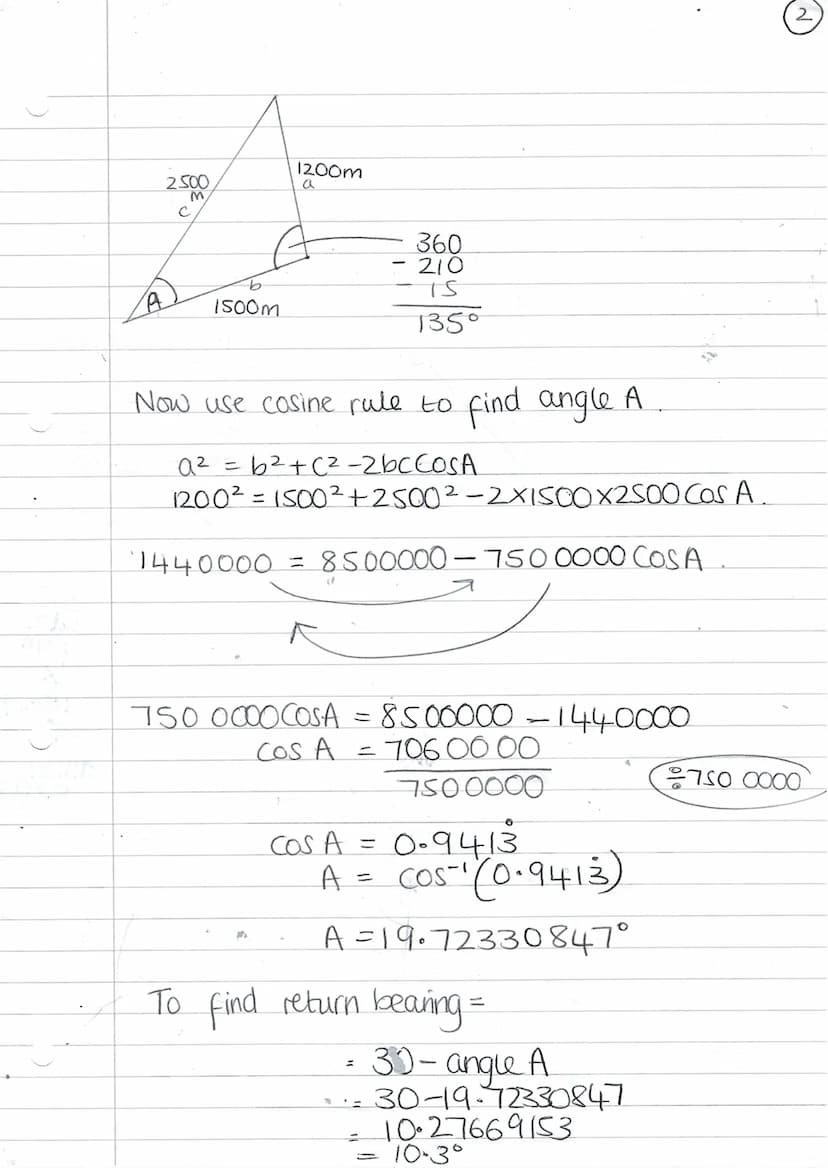 2
2500
m
c
1200m
a
360
- 210
- 15
135°
A
b
1500m
Now use cosine rule to find angle A.
a² = b²+c²-2bcCosA
1200² = 1500²+2500²-2×1500×2500 Cos A.
1440000 = 8500000-7500000 COSA.
750 0000COSA = 8500000-1440000
COS A = 7060000
7500000
÷750 0000
COS A = 0.9413̇
A = COS⁻¹(0.9413̇)
A = 19.72330847°
To find return bearing =
= 30- angle A
= 30-19.72330847
= 10.27669153
= 10.3°